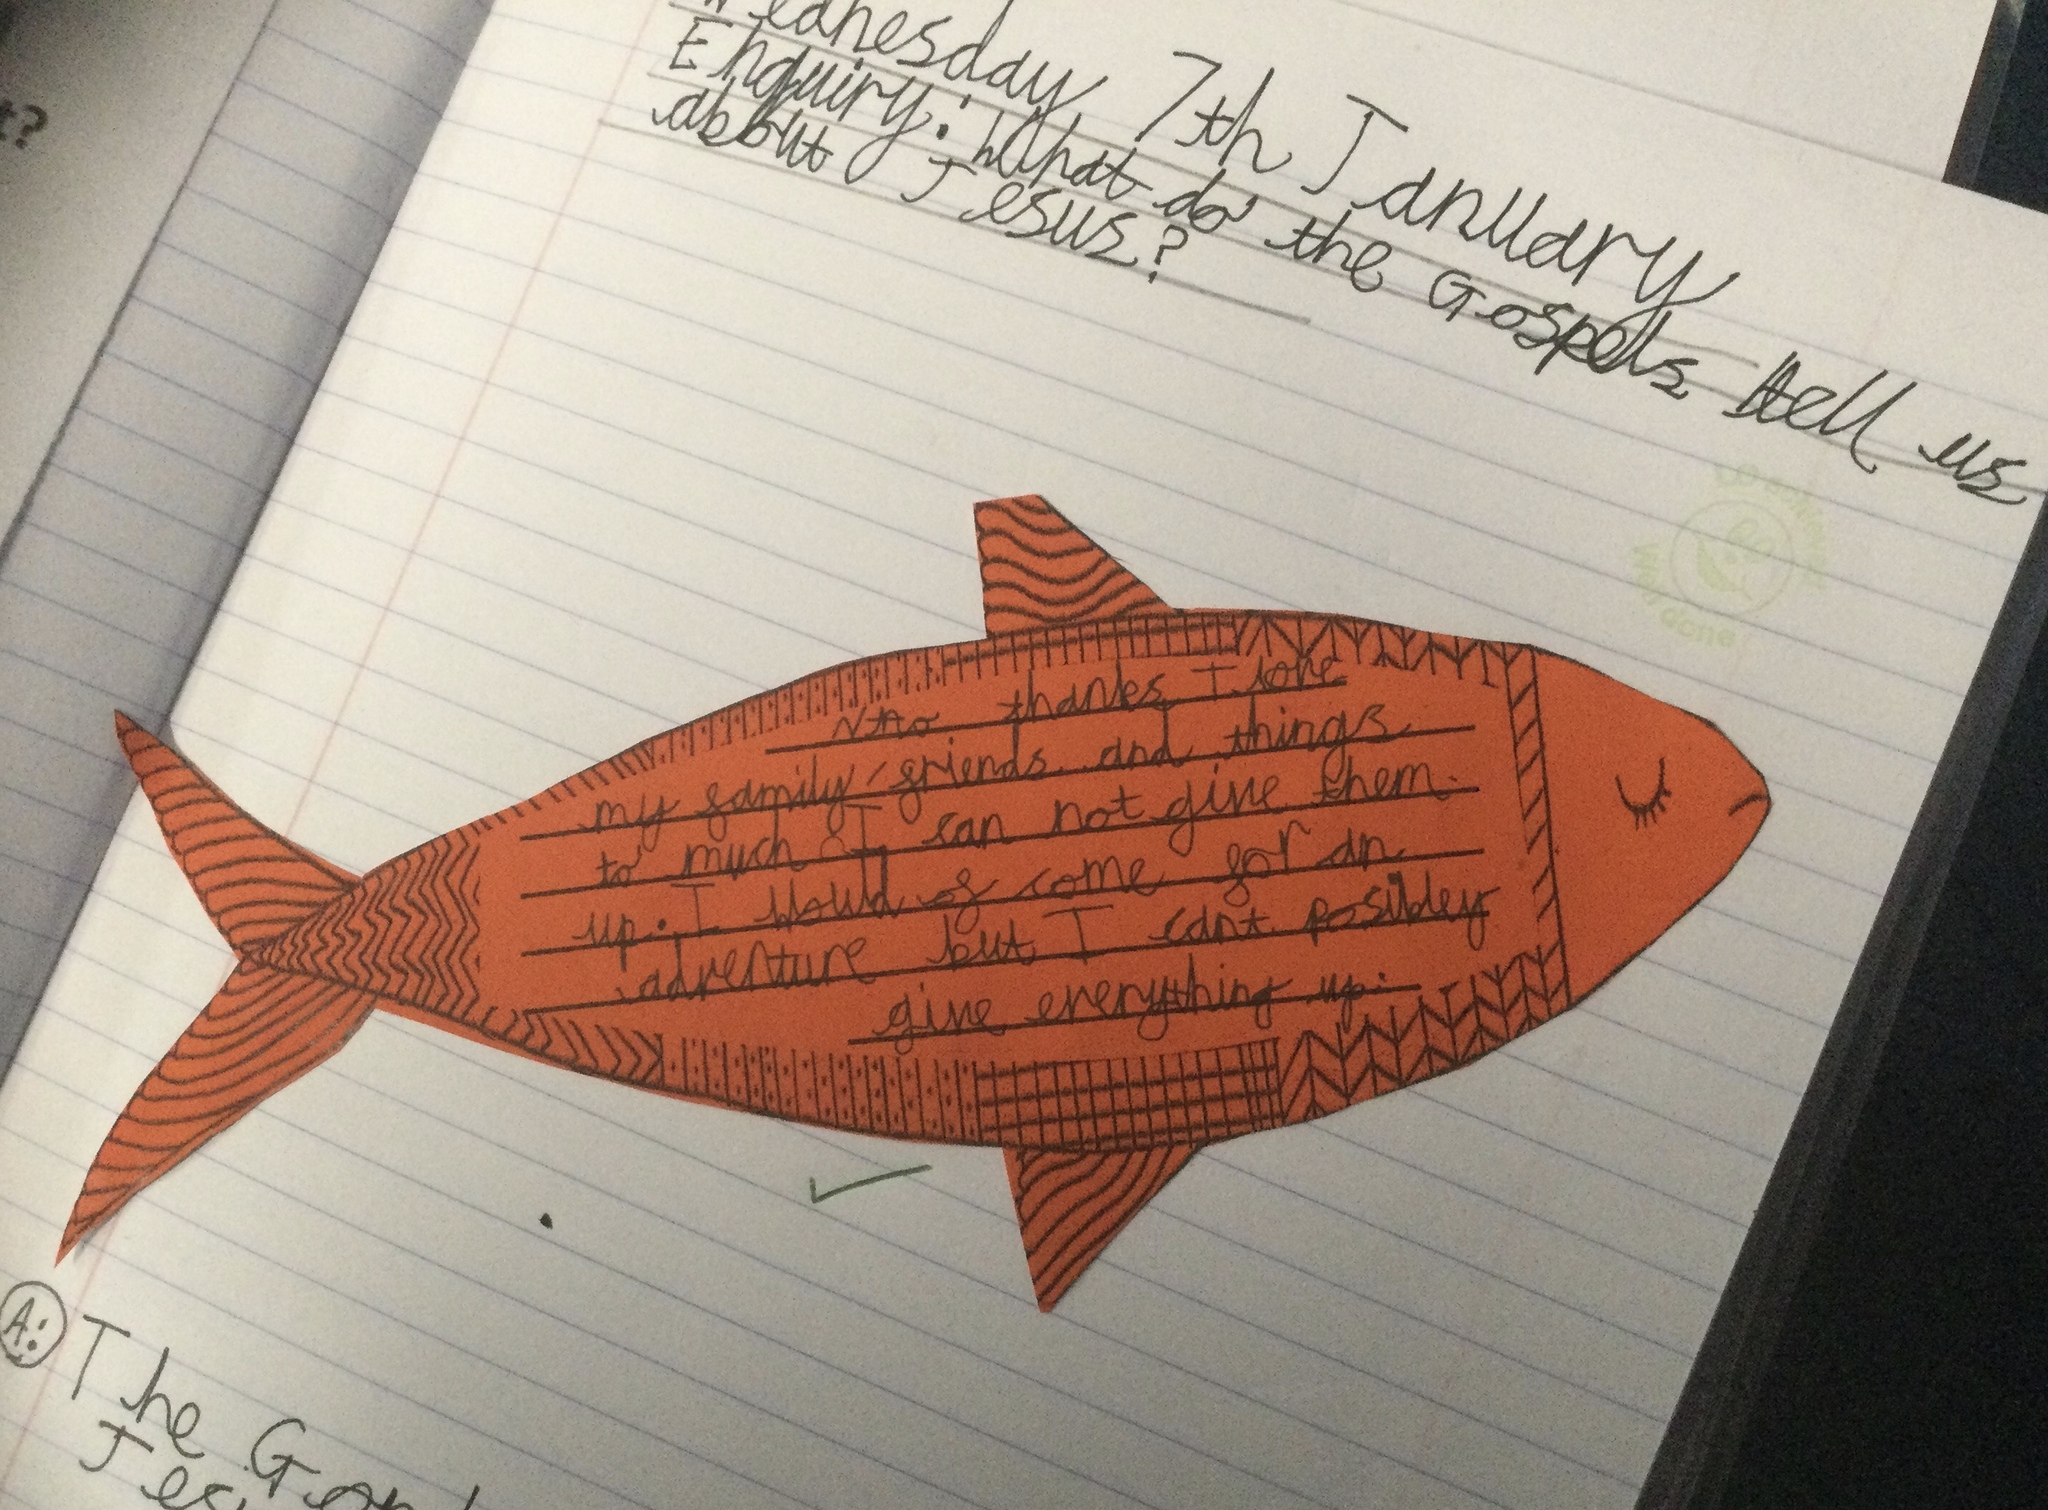 t?
Wednesday 7th January
Enquiry: What do the Gospels tell us
about Jesus?
Well done
No thanks I love
my family, friends and things
to much I can not give them
up. I would of come for an
adventure but I cant posibley
give everything up.
A:
The Gosp
Jes